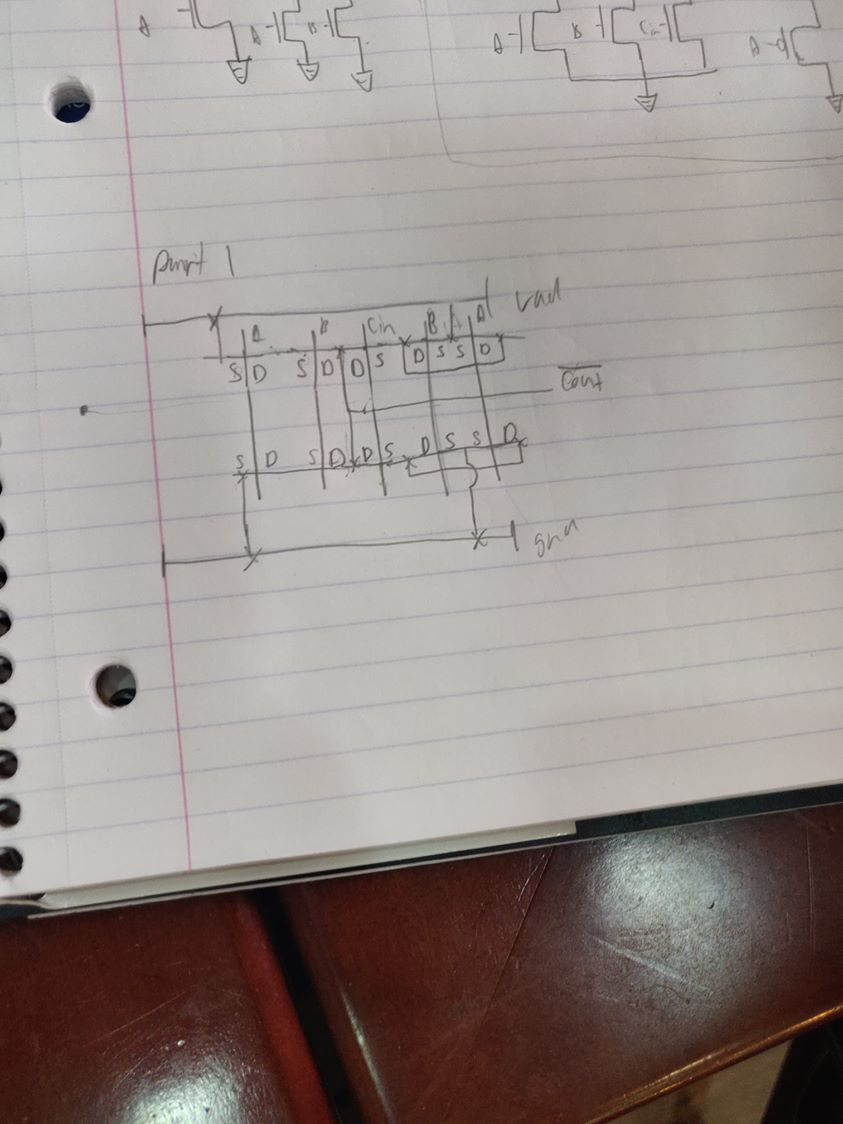 A A B
A B Cin A
Part 1
Vdd
A B Cin B A
S D S D D S D S S D
Cout
S D S D D S D S S D
gnd